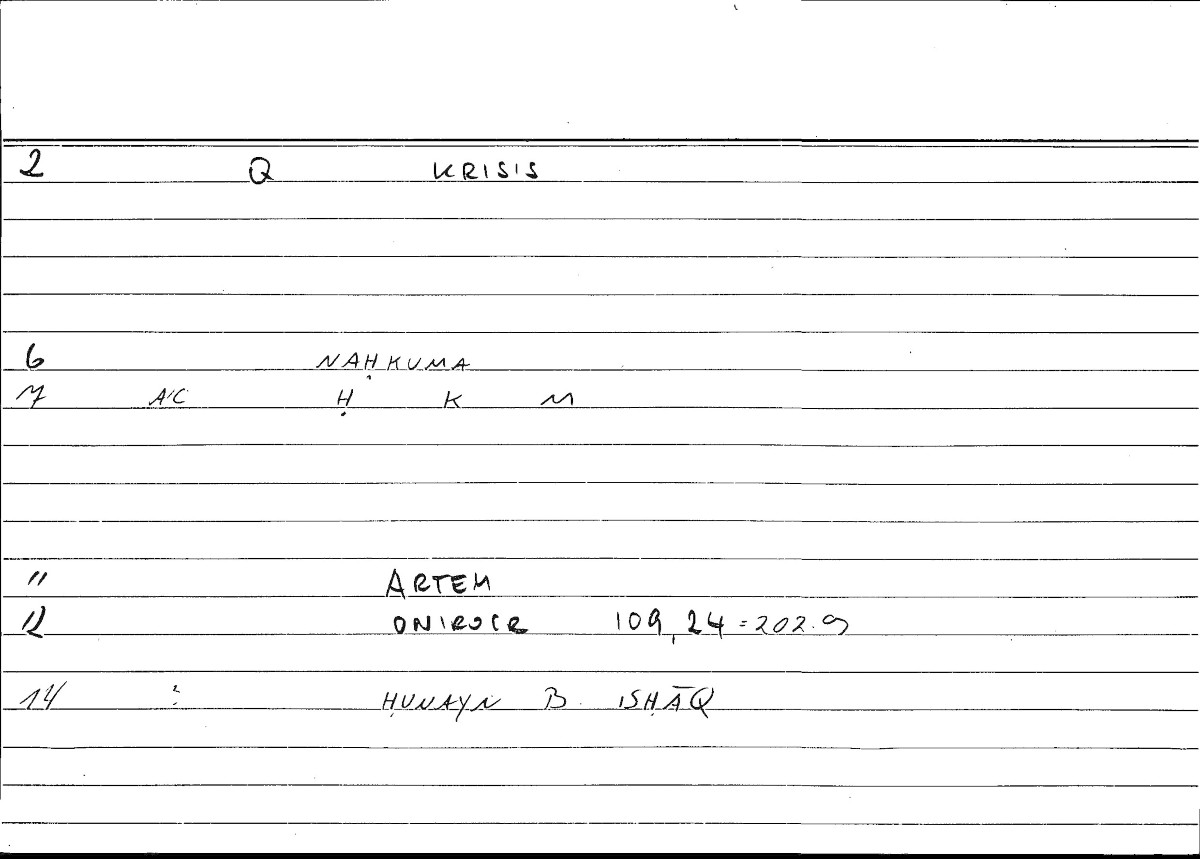 2 Q KRISIS
6 NAḤKUMA
7 A'C Ḥ K M
11 ARTEM
12 ONIROCR 109,24=202.9
14 ? ḤUNAYN B. ISḤĀQ